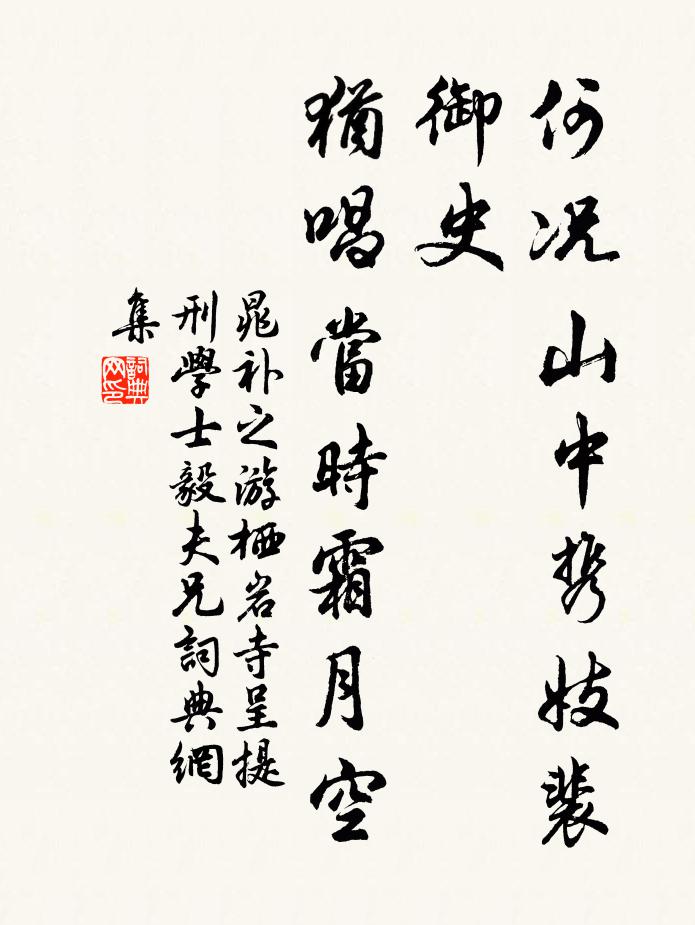 何况山中携妓裴
御史
猶唱當時霜月空
晁补之游栖岩寺呈提
刑學士毅夫兄詞典網
集
詞典
网印